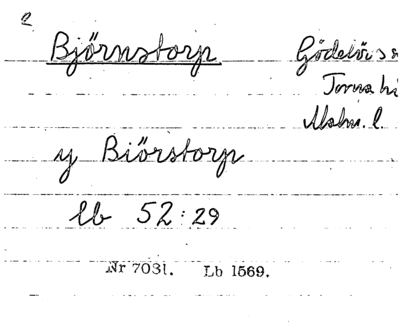 2
Björnstorp
Torna
Malm. l.
y Biörstorp
lb 52:29
Nr 7031. Lb 1569.